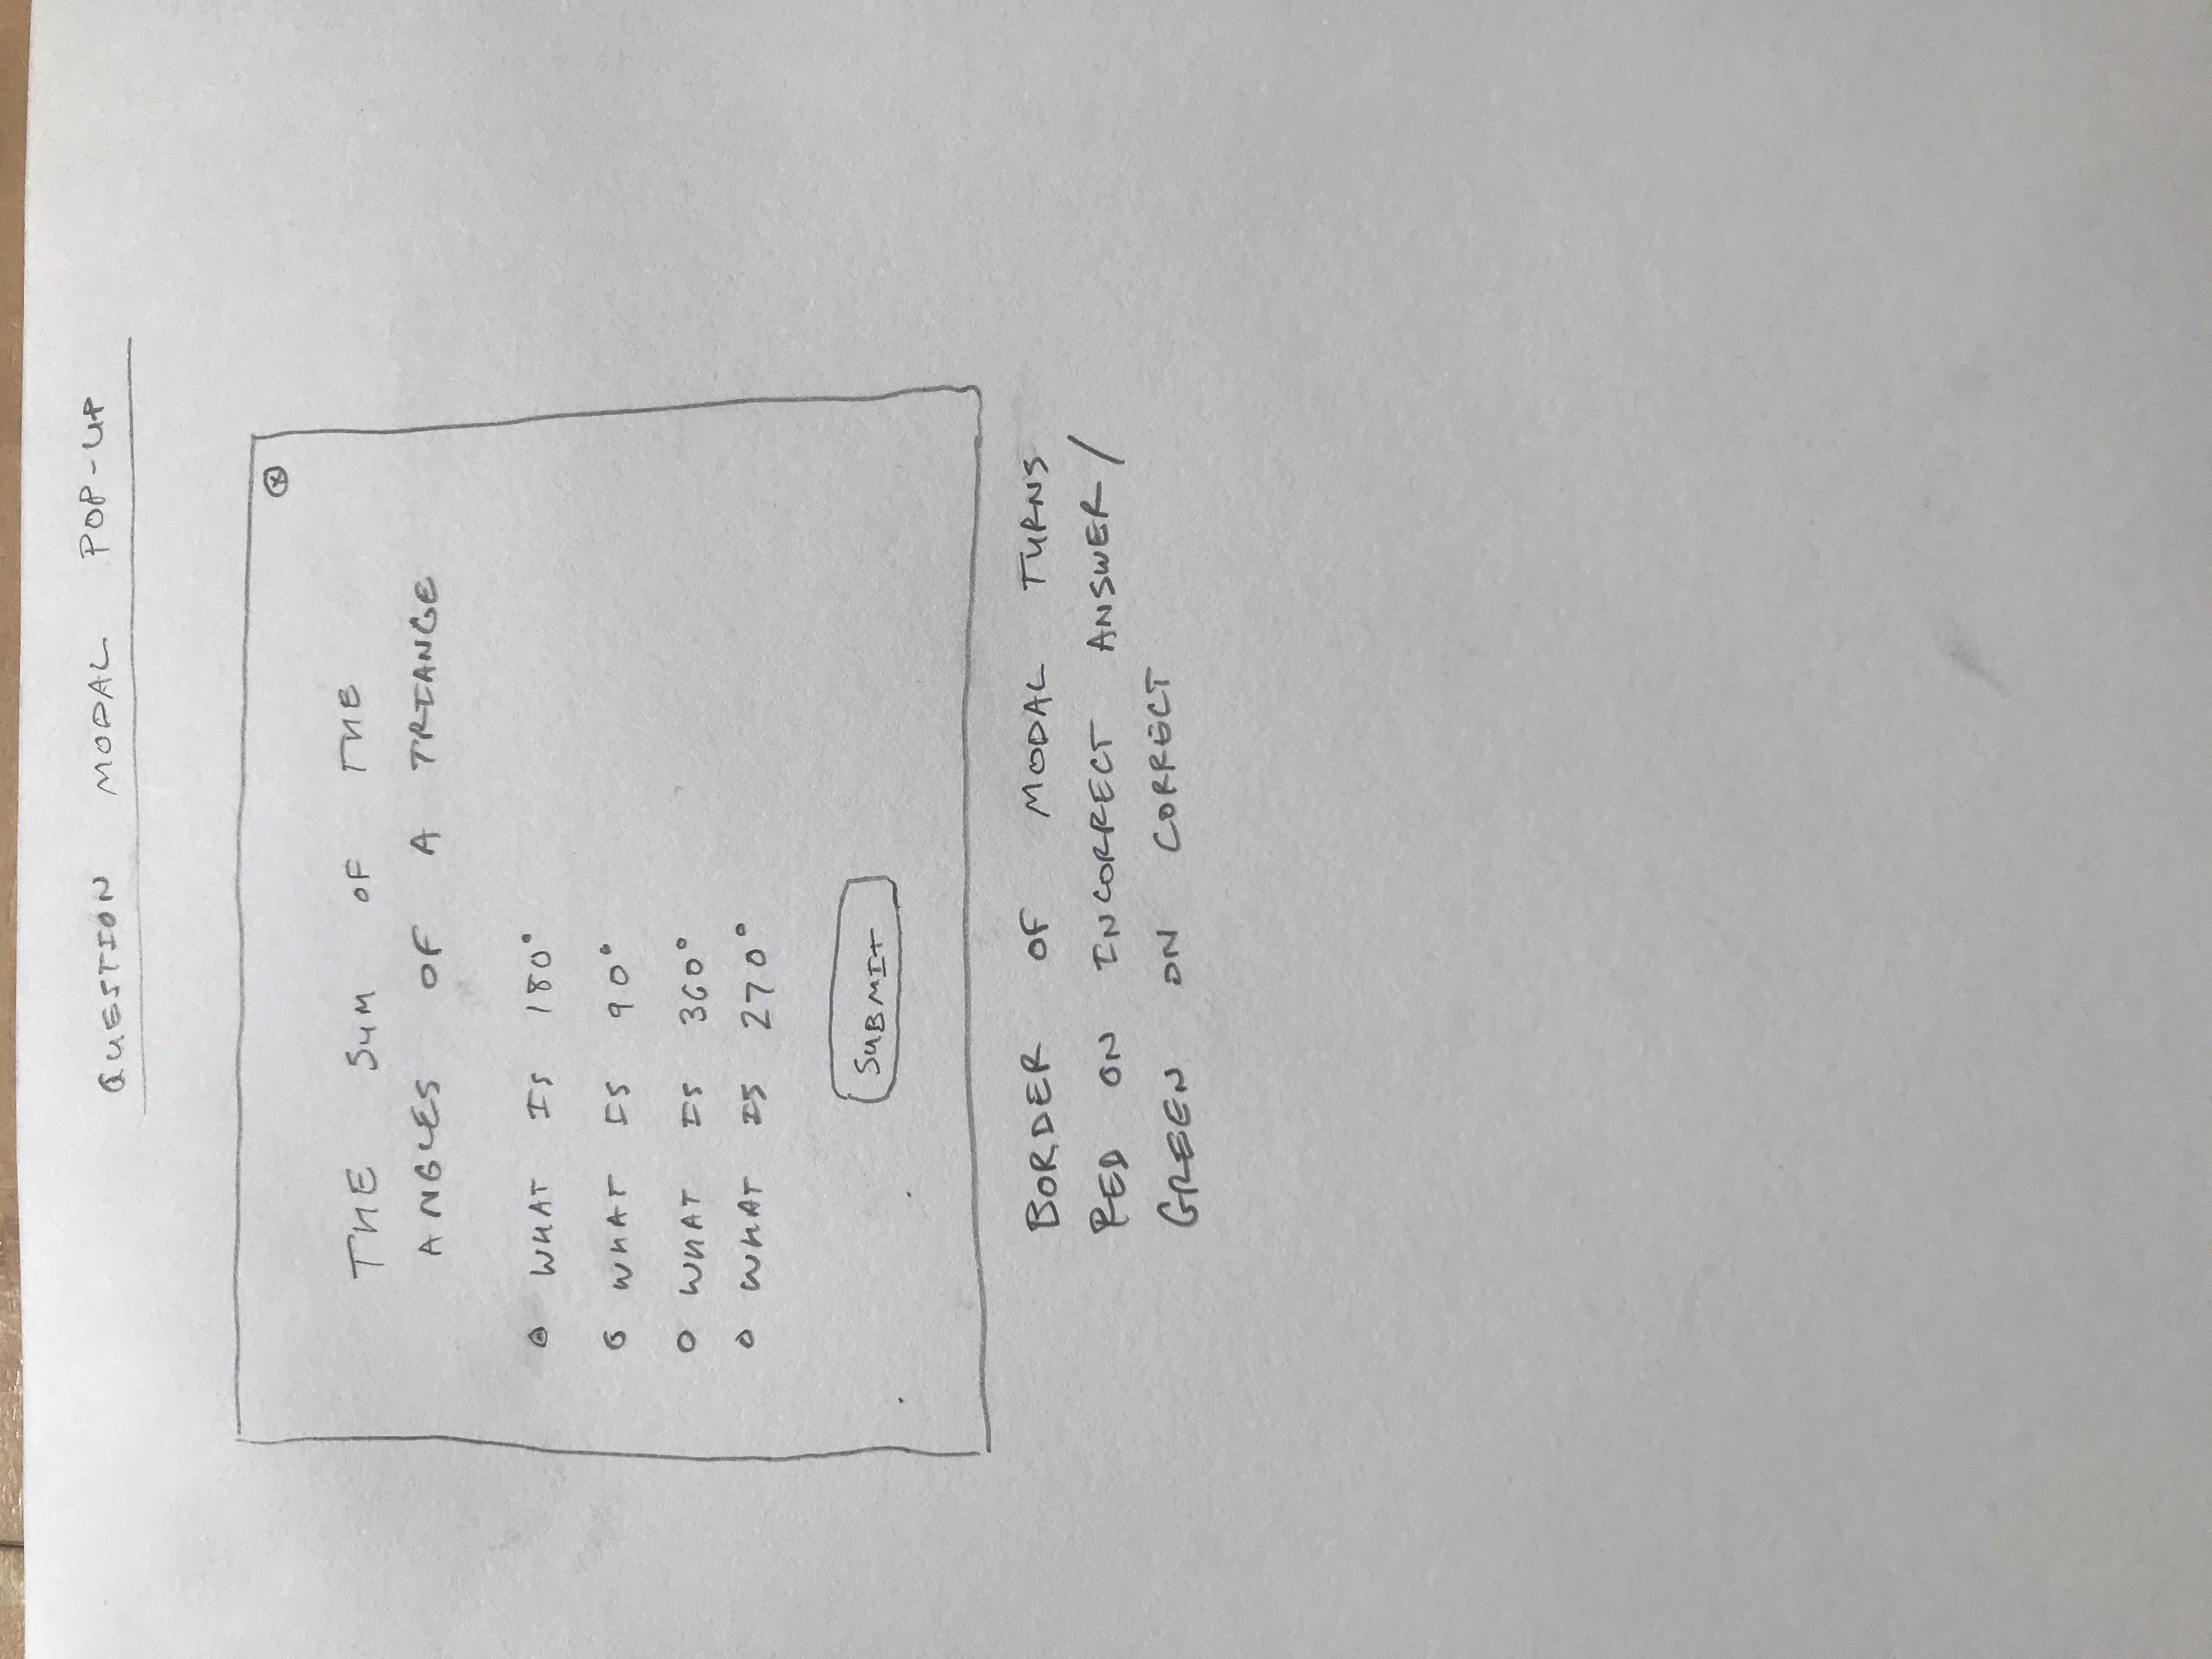 QUESTION MODAL POP-UP
THE SUM OF THE
ANGLES OF A TRIANGE
WHAT IS 180°
WHAT IS 90°
WHAT IS 360°
WHAT IS 270°
SUBMIT
BORDER OF MODAL TURNS
RED ON INCORRECT ANSWER/
GREEN ON CORRECT